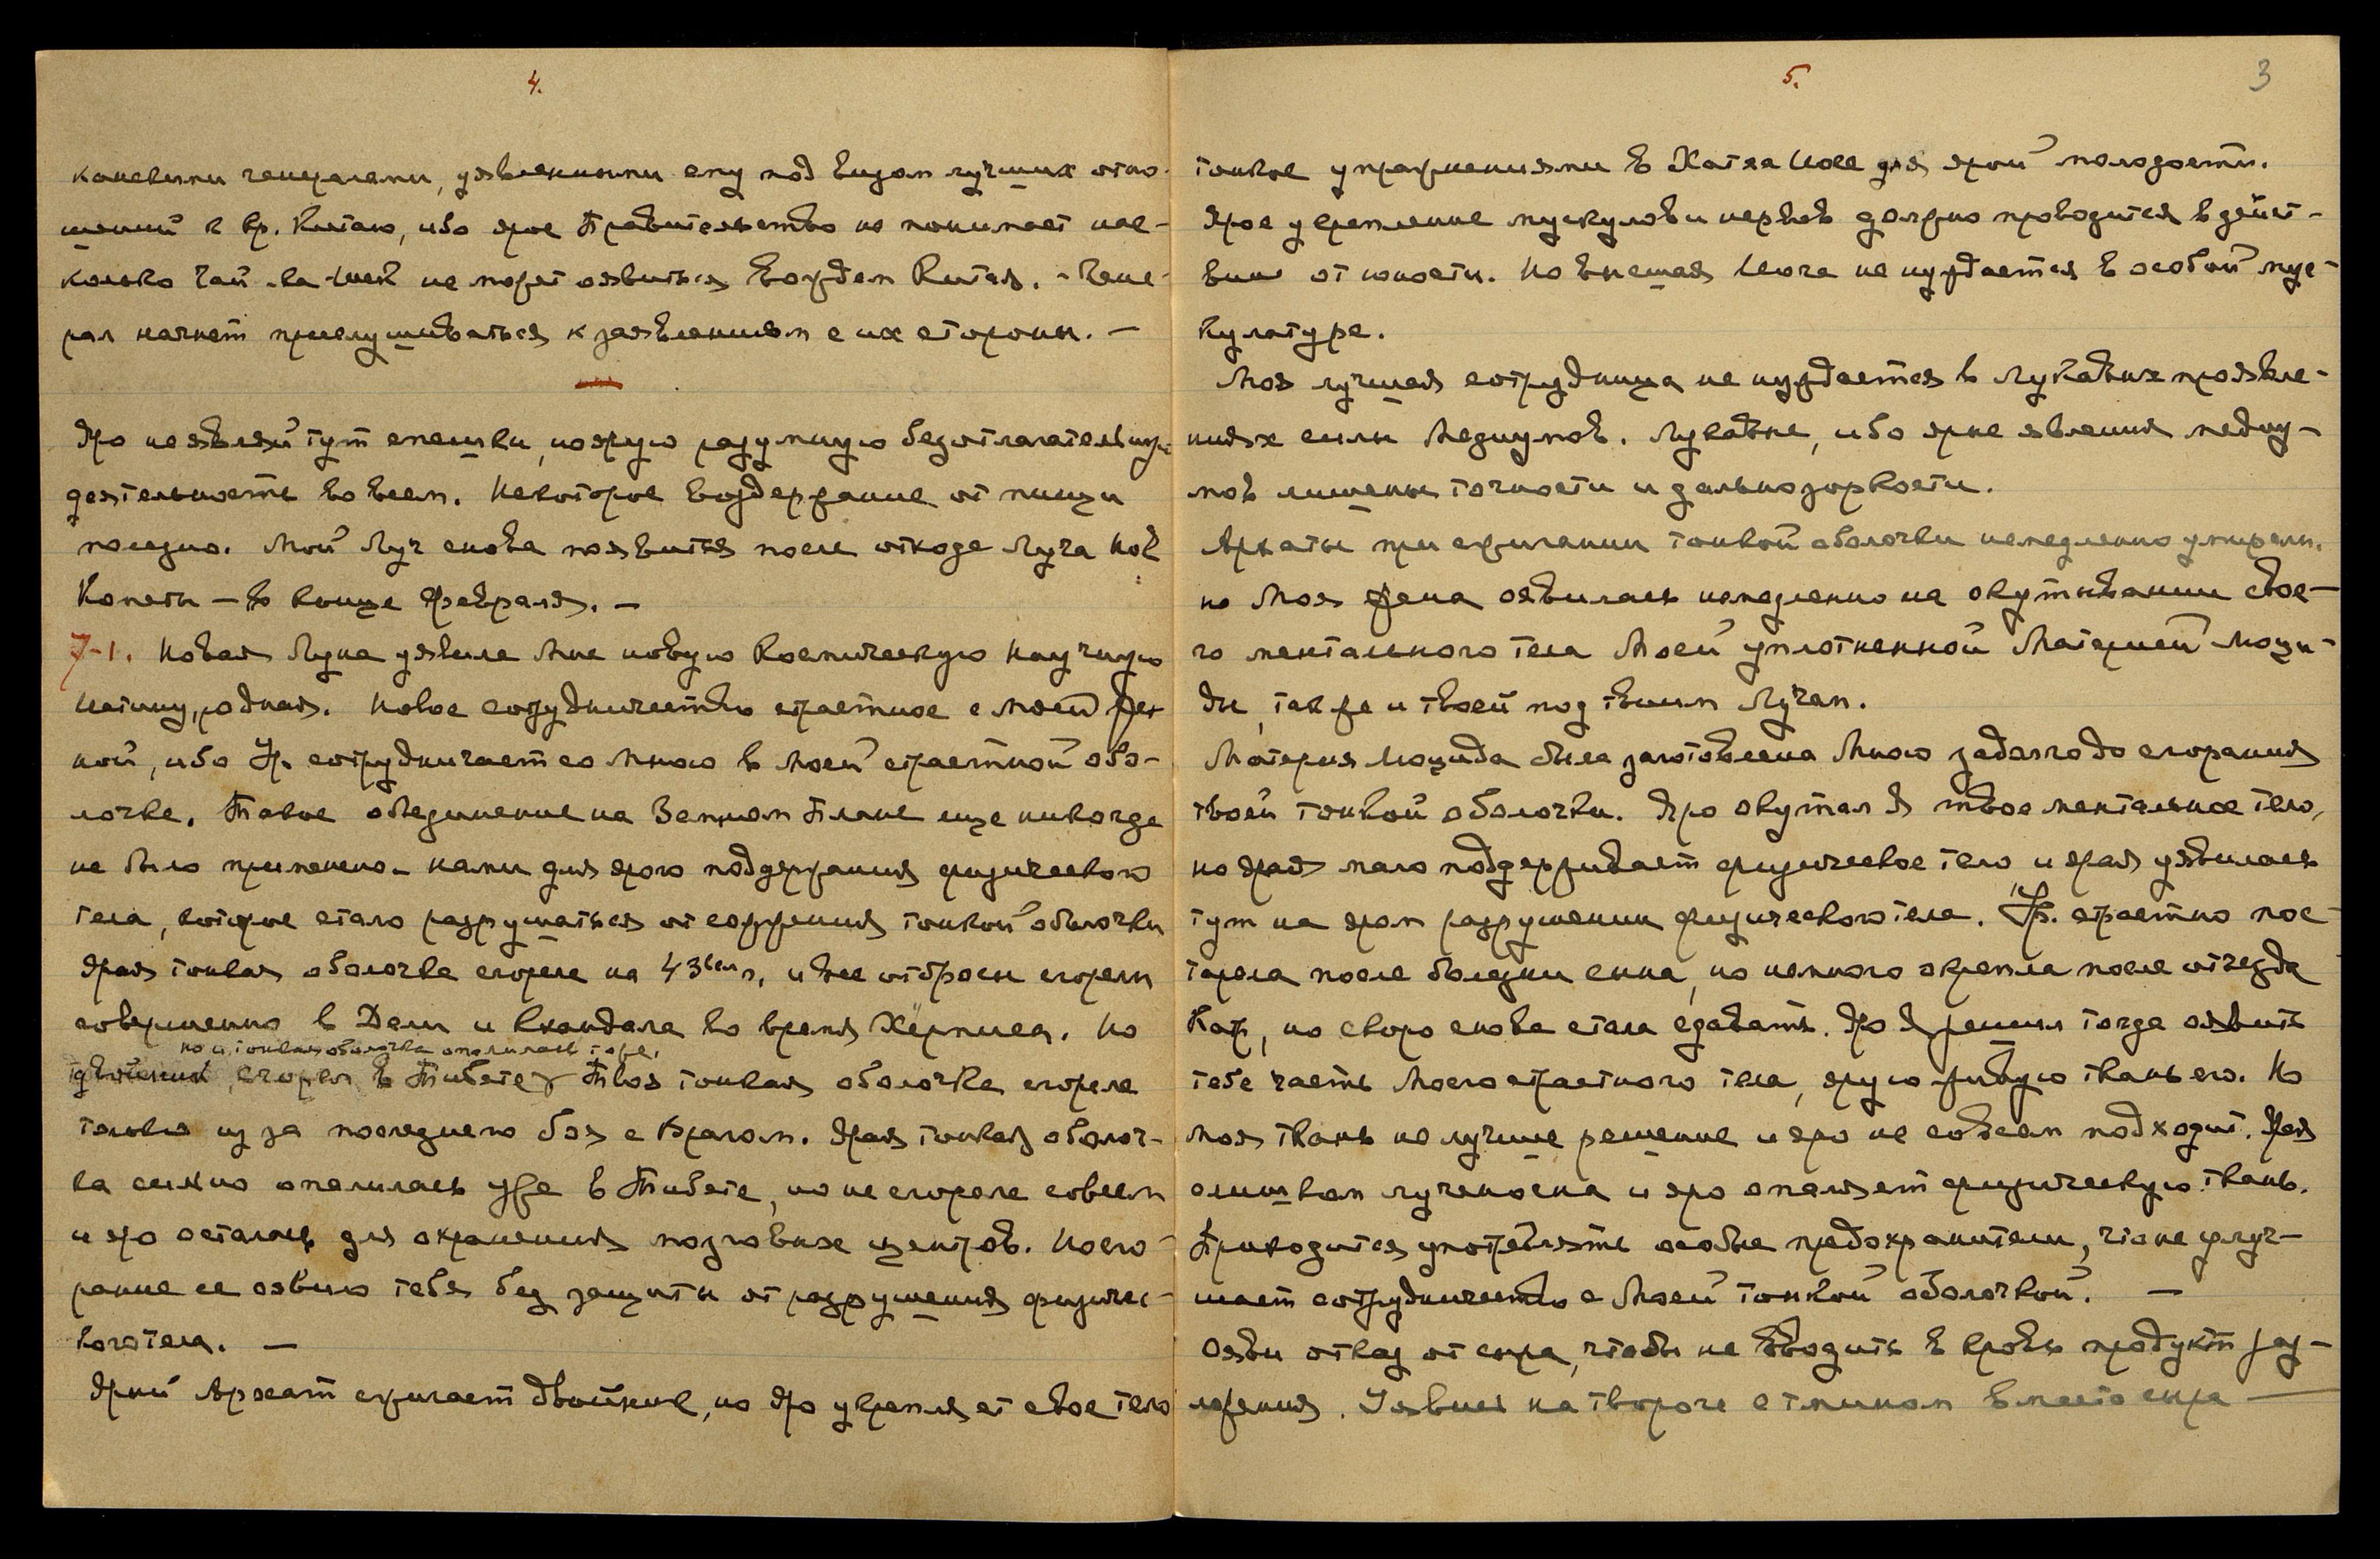 4.
каневыми генералами, уявленными ему под видом лучших отно-
шений к кр. Китаю, ибо ярое Правительство не понимает нас-
колько Чай-ка-Шек не может оявиться вождем Китая. - Гене-
рал начнет прислушиваться к заявлениям с их стороны. —
Яро не являй тут спешки, но ярую разумную безотлагательную
деятельность во всем. Некоторое воздержание от пищи
полезно. Мой Луч снова появится после отхода Луча Нов
Кометы — в конце февраля. —
7-1. Новая Луна уявила Мне новую Космическую Научную
Истину, родная. Новое сотрудничество страстное с моей Же-
ной, ибо Ур. сотрудничает со Мною в Моей страстной обо-
лочке. Такое объединение на Земном Плане еще никогда
не было применено нами для ярого поддержания физического
тела, которое стало разрушаться от сожжения тонкой оболочки
Ярая тонкая оболочка сгорела на 43 г. и все отбросы сгорели
совершенно в Дели и Кхандала во время Хёрписа. Но
но и тонкая оболочка опалилась тоже.
двойник сгорел в Тибете, Твоя тонкая оболочка сгорела
только из за последнего боя с Врагом. Ярая тонкая оболоч-
ка сильно опалилась уже в Тибете, но не сгорела совсем
и яро осталась для охранения мозговых центров. Но сго-
рание ее оявило тебя без защиты от разрушения физичес-
кого тела. —
Ярый Архат сжигает двойник, но Яро укрепляет свое тело
5.
3
тонкое упражнениями в Хатха Йоге для ярой молодости.
Ярое укрепление мускулов и нервов должно проводится в дейст-
вии от юности. Но высшая Йога не нуждается в особой мус-
кулатуре.
Моя лучшая сотрудница не нуждается в лукавых проявле-
ниях силы Медиумов. Лукавые, ибо ярые явления медиу-
мов лишены точности и дальнозоркости.
Архаты при сжигании тонкой оболочки немедленно умирали.
но Моя жена оявилась немедленно на окутывании свое-
го ментального тела Моей уплотненной Материей Моци-
ды, также и твоей под твоим Лучам.
Материя Моцида была заготовлена Мною задолго до сгорания
твоей тонкой оболочки. Яро окутал Я твое ментальное тело,
но ярая мало поддерживает физическое тело и ярая уявилась
тут на яром разрушении физического тела. Ур. страстно пос-
тарела после болезни сына, но немного окрепла после отъезда
Кат, но скоро снова стала сдавать. Яро Я решил тогда оявить
тебе часть Моего страстного тела, ярую живую ткань его. Но
Моя ткань не лучшее решение и яро не совсем подходит. Яая
слишком лученосна и яро опаляет физическую ткань.
Приходится употреблять особые предохранители, что не улуч-
шает сотрудничество с Моей Тонкой оболочкой. —
Ояви отказ от сыра, чтобы не вводить в кровь продукт раз-
ложения. Уявись на твороге с тмином вместо сыра —